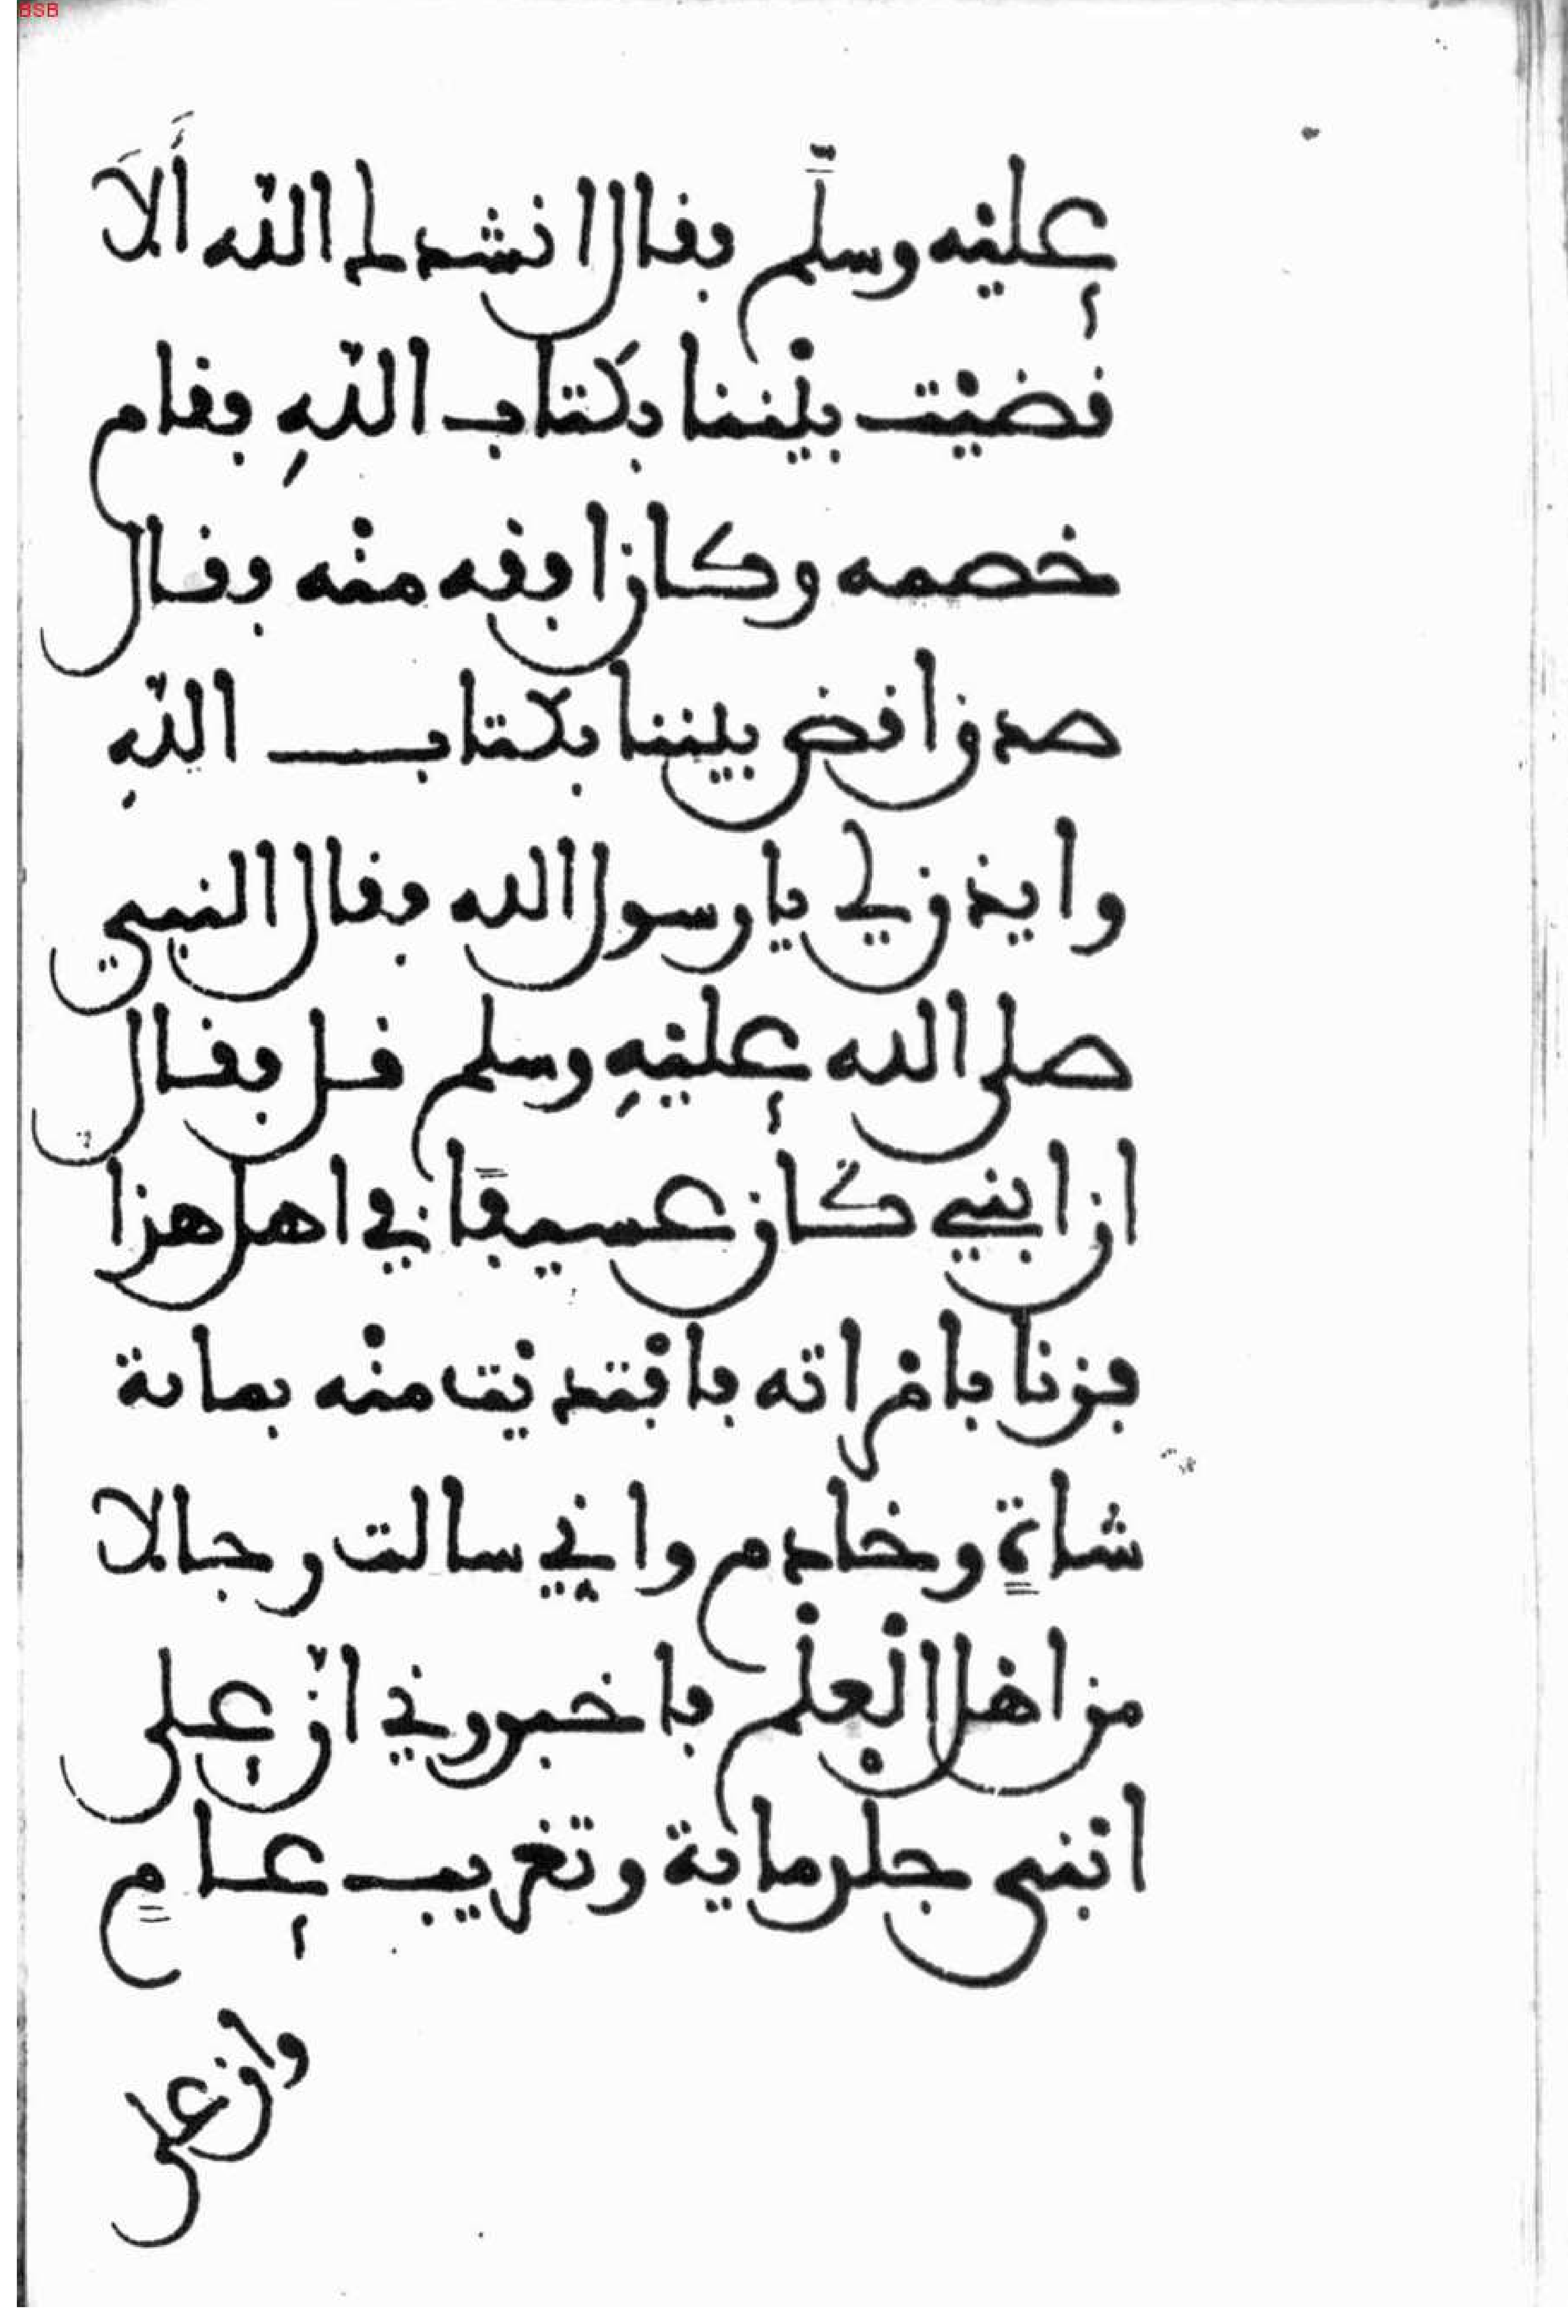 BSB
عليه وسلّم فقال انشدك الله ألَا
قضيت بيننا بكتاب اللهِ فقام
خصمه وكان افقه منه فقال
صدق اقض بيننا بكتاب اللهِ
وايذن لي يا رسول الله فقال النبي
صلى الله عليهِ وسلم قل فقال
ان ابني كان عسيفًا في اهل هذا
فزنا بامراته فافتديت منه بماىة
شاةٍ وخادم واني سالت رجالا
من اهل العلم فاخبروني انّ على
ابنى جلد ماية وتغريب عامٍ
وان على